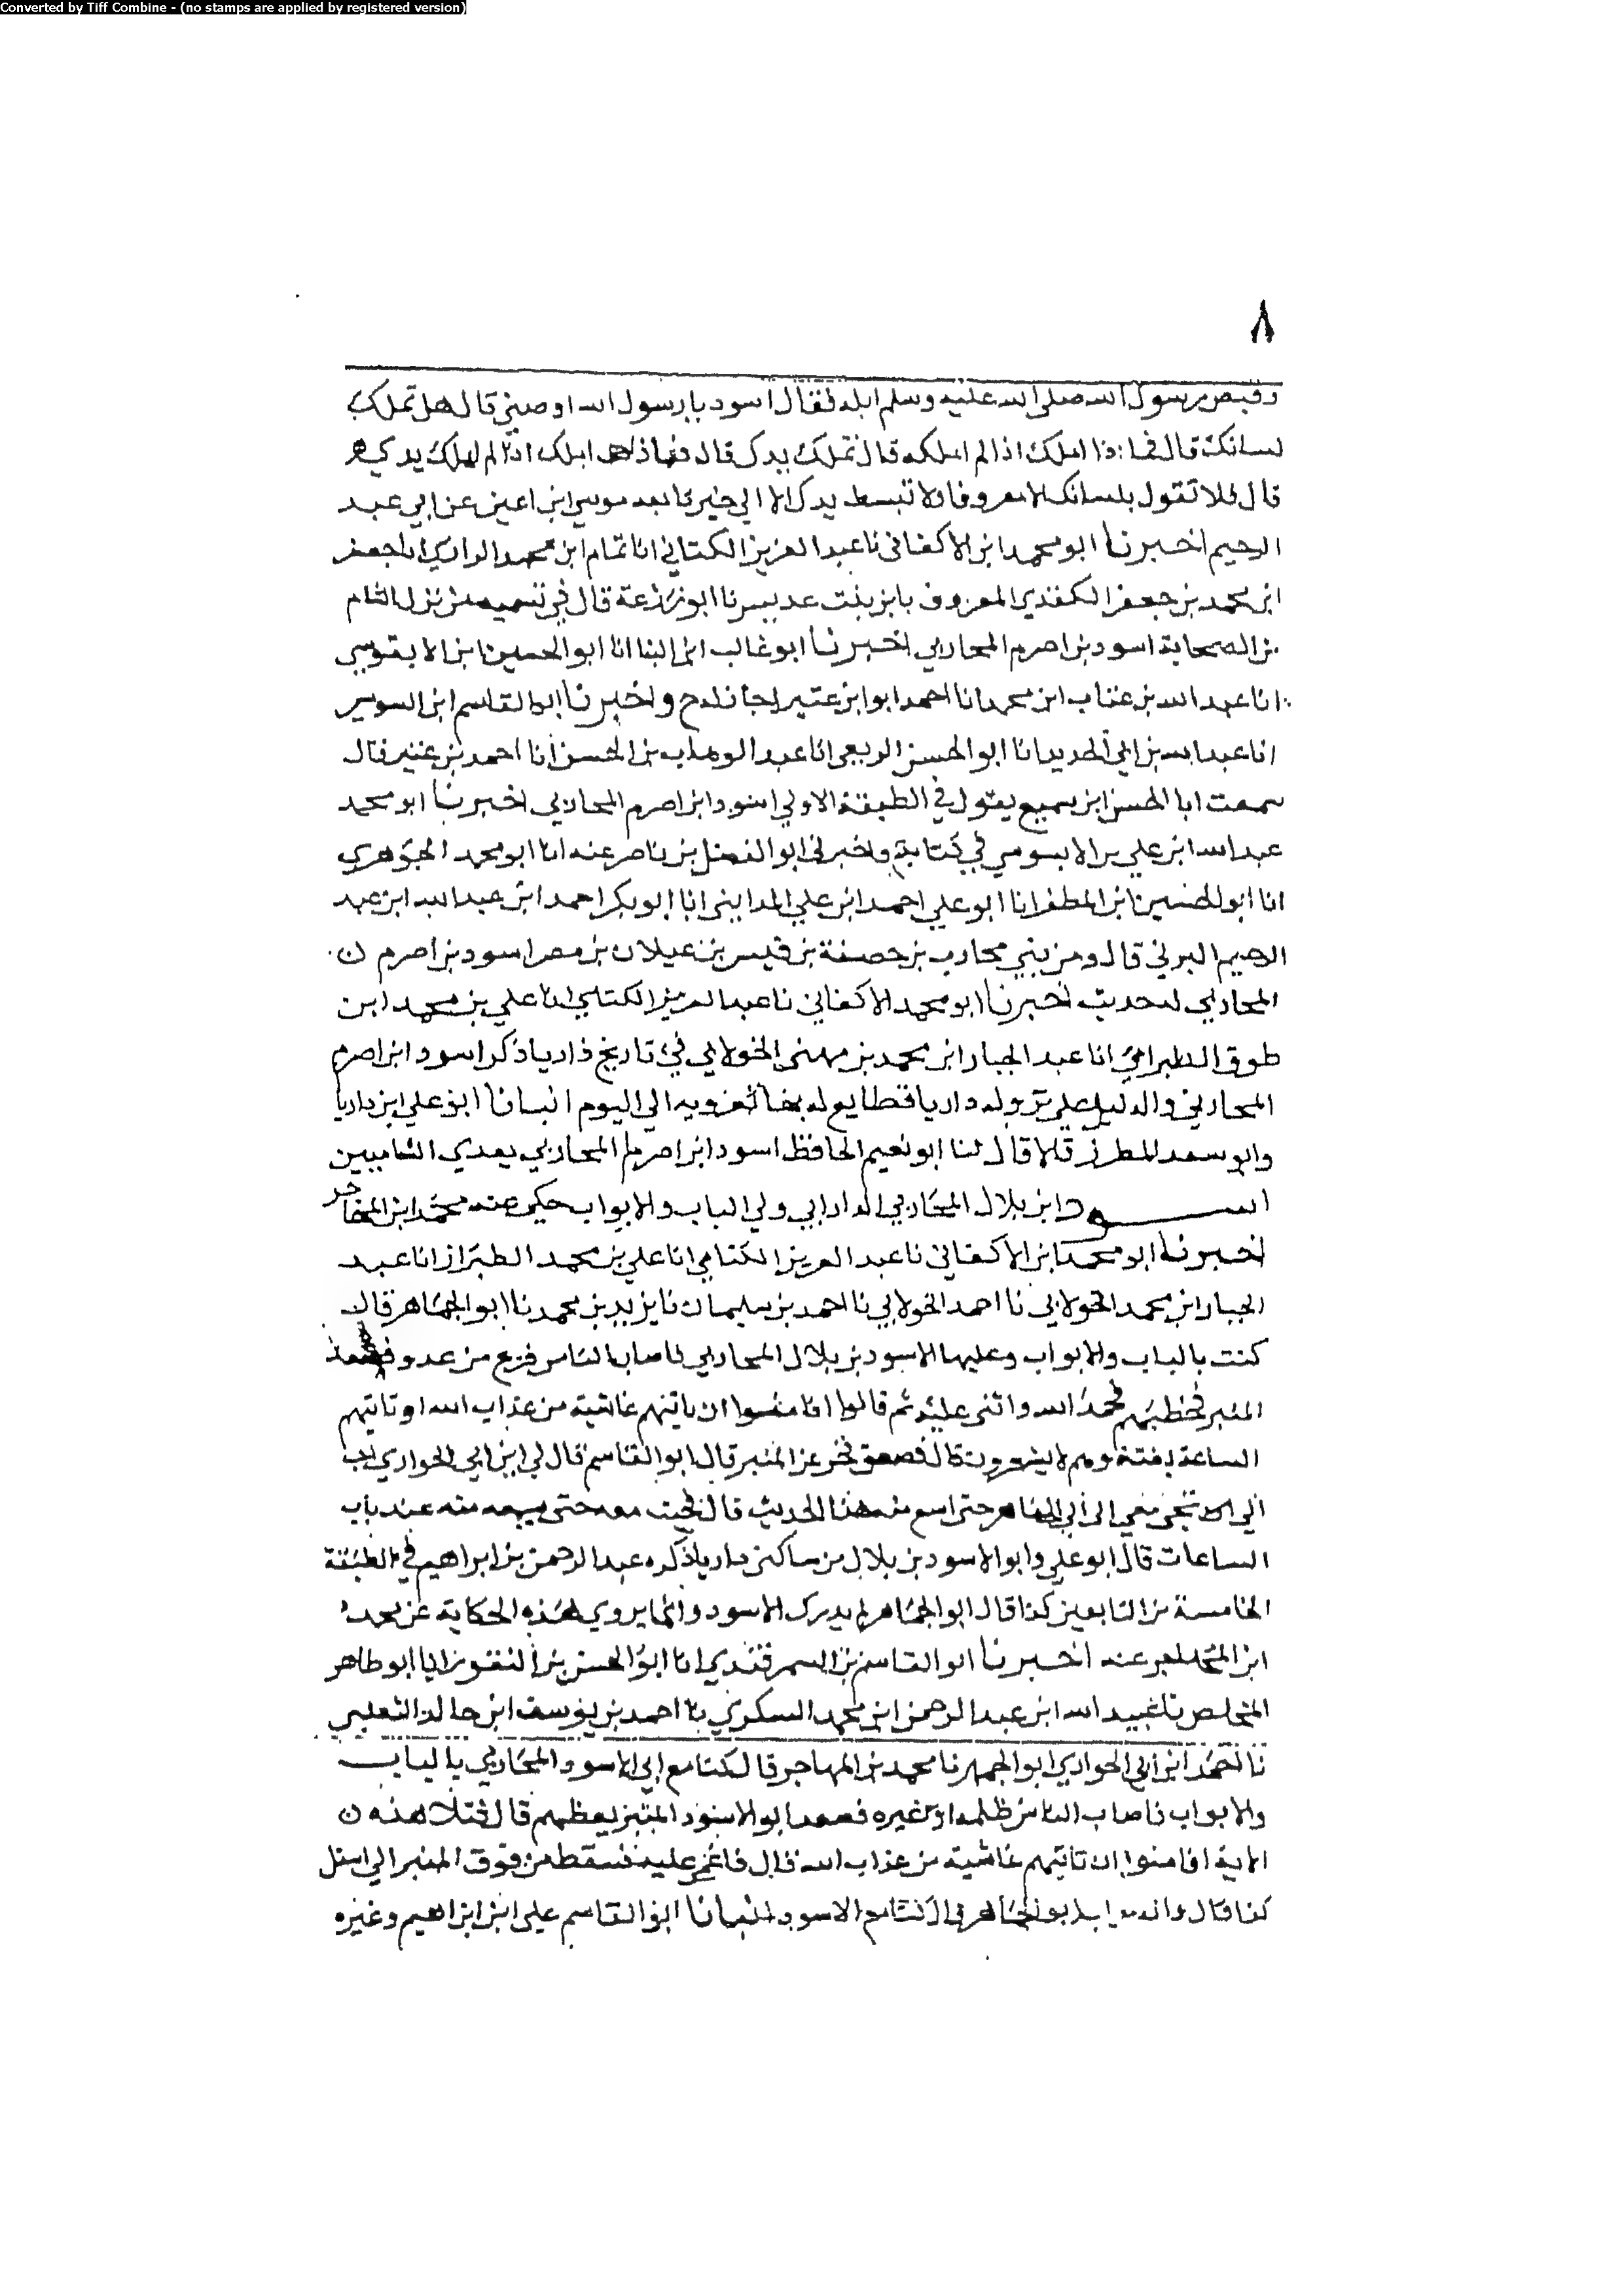 Converted by Tiff Combine - (no stamps are applied by registered version)
٨
وقبض رسول الله صلى الله عليه وسلم ابله فقال اسود يا رسول الله اوصيني قال هل تملك
لسانك قال فما ذا املك اذا لم املكه قال تملك يدك قال فماذا املك اذا لم املك يدي
قال فلا تقول بلسانك الا معروفا ولا تبسط يدك الا الي خير تابعه موسي ابن اعين عن ابي عبد
الرحيم اخبرنا ابو محمد ابن الاكفاني نا عبد العزيز الكتاني انا تمام ابن محمد الرازي انا جعفر
ابن محمد بن جعفر الكندي المعروف بابن بنت عدبس نا ابو زرعة قال في تسميه من نزل الشام
من الصحابة اسود بن اصرم المحاربي اخبرنا ابو غالب ابن البنا انا ابو الحسين ابن الابنوسي
انا عبد الله بن عتاب ابن محمد انا احمد ابو ابن عمير اجازه ح واخبرنا ابو القاسم ابن السوسي
انا عبد الله بن ابي الحديد انا ابو الحسن الربعي انا عبد الوهاب بن الحسن انا احمد بن عمير قال
سمعت ابا الحسن ابن سميع يقول في الطبقة الاولي اسود ابن اصرم المحاربي اخبرنا ابو محمد
عبد الله ابن علي بن الابنوسي في كتابه واخبرني ابو الفضل بن ناصر عنه انا ابو محمد الجوهري
انا ابو الحسين ابن المظفر انا ابو علي احمد ابن علي المدايني انا ابو بكر احمد ابن عبد الله ابن عبد
الرحيم البرقي قال ومن بني محارب بن خصفة بن قيس بن عيلان بن مضر اسود بن اصرم
المحاربي له حديث اخبرنا ابو محمد الاكفاني نا عبد العزيز الكتاني انا علي بن محمد ابن
طوق الطبراني انا عبد الجبار ابن محمد بن مهنى الخولاني في تاريخ داريا ذكر اسود ابن اصرم
المحاربي والدليل علي نزوله داريا قطايع له بها تعرف به الي اليوم انبانا ابو علي ابن داريا
وابو سعد المطرز قالا قال لنا ابو نعيم الحافظ اسود ابن اصرم المحاربي يعد في الشاميين
اسود ابن بلال المحاربي الداراني ولي الباب والابواب حكى عنه محمد ابن المهاجر
اخبرنا ابو محمد ابن الاكفاني نا عبد العزيز الكتاني انا علي بن محمد الطبراني انا عبد
الجبار ابن محمد الخولاني نا احمد الخولاني نا احمد بن سليمان نا يزيد بن محمد نا ابو الجماهر قال
كنت بالباب والابواب وعليها الاسود بن بلال المحاربي فاصاب الناس فزع من عدو فصعد
المنبر فخطبهم فحمد الله واثنى عليه ثم قالوا افامنوا ان ياتيهم غاشية من عذاب الله او تاتيهم
الساعة بغتة وهم لا يشعرون قال فصعق فخر عن المنبر قال ابو القاسم قال لي ابن ابي الحواري
الي الا تجي معي الى ابي الجماهر حتى اسمع منه هذا الحديث قال فجيت معه حتى سمعه منه عند باب
الساعات قال ابو علي وابو الاسود بن بلال من ساكني داريا ذكره عبد الرحمن بن ابراهيم في الطبقة
الخامسة من التابعين كذا قال ابو الجماهر لم يدرك الاسود وانما يروي هذه الحكاية عن محمد
ابن المهاجر عنه اخبرنا ابو القاسم بن السمرقندي انا ابو الحسين بن النقور انا ابو طاهر
المخلص نا عبيد الله ابن عبد الرحمن ابن محمد السكري نا احمد بن يوسف ابن خالد التغلبي
نا احمد ابن ابي الحواري ابو الجماهر نا محمد بن المهاجر قال كنا مع ابي الاسود المحاربي بالباب
والابواب فاصاب الناس ظلمه او غيره فصعد ابو الاسود المنبر يعظهم قال فتلا هذه
الاية افامنوا ان تاتيهم غاشية من عذاب الله قال فاغمي عليه فسقط من فوق المنبر الي اسفل
كذا قال ابو الجماهر الاسود انبانا ابو القاسم علي ابن ابراهيم وغيره